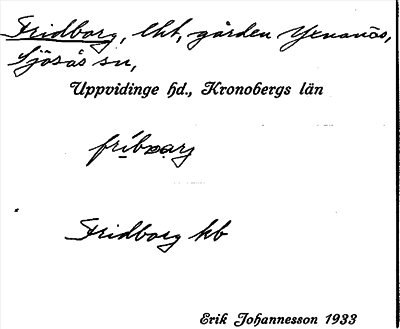 Fridborg, lht, gården Yxnanäs,
Sjösås sn,
Uppvidinge hd., Kronobergs län
Fridborg kb
Erik Johannesson 1933